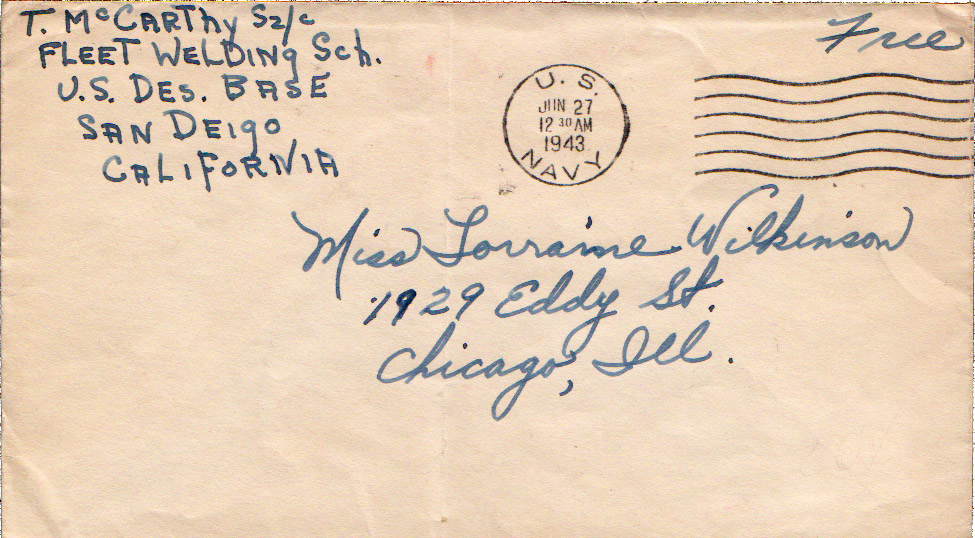 T. McCARThy S2/c
FLEET WELDINg Sch.
U.S. DES. BASE
SAN DEIgO
CALIFORNIA
Free
U. S.
JUN 27
12 30 AM
1943
NAVY
Miss Lorraine Wilkinson
1929 Eddy St.
Chicago, Ill.